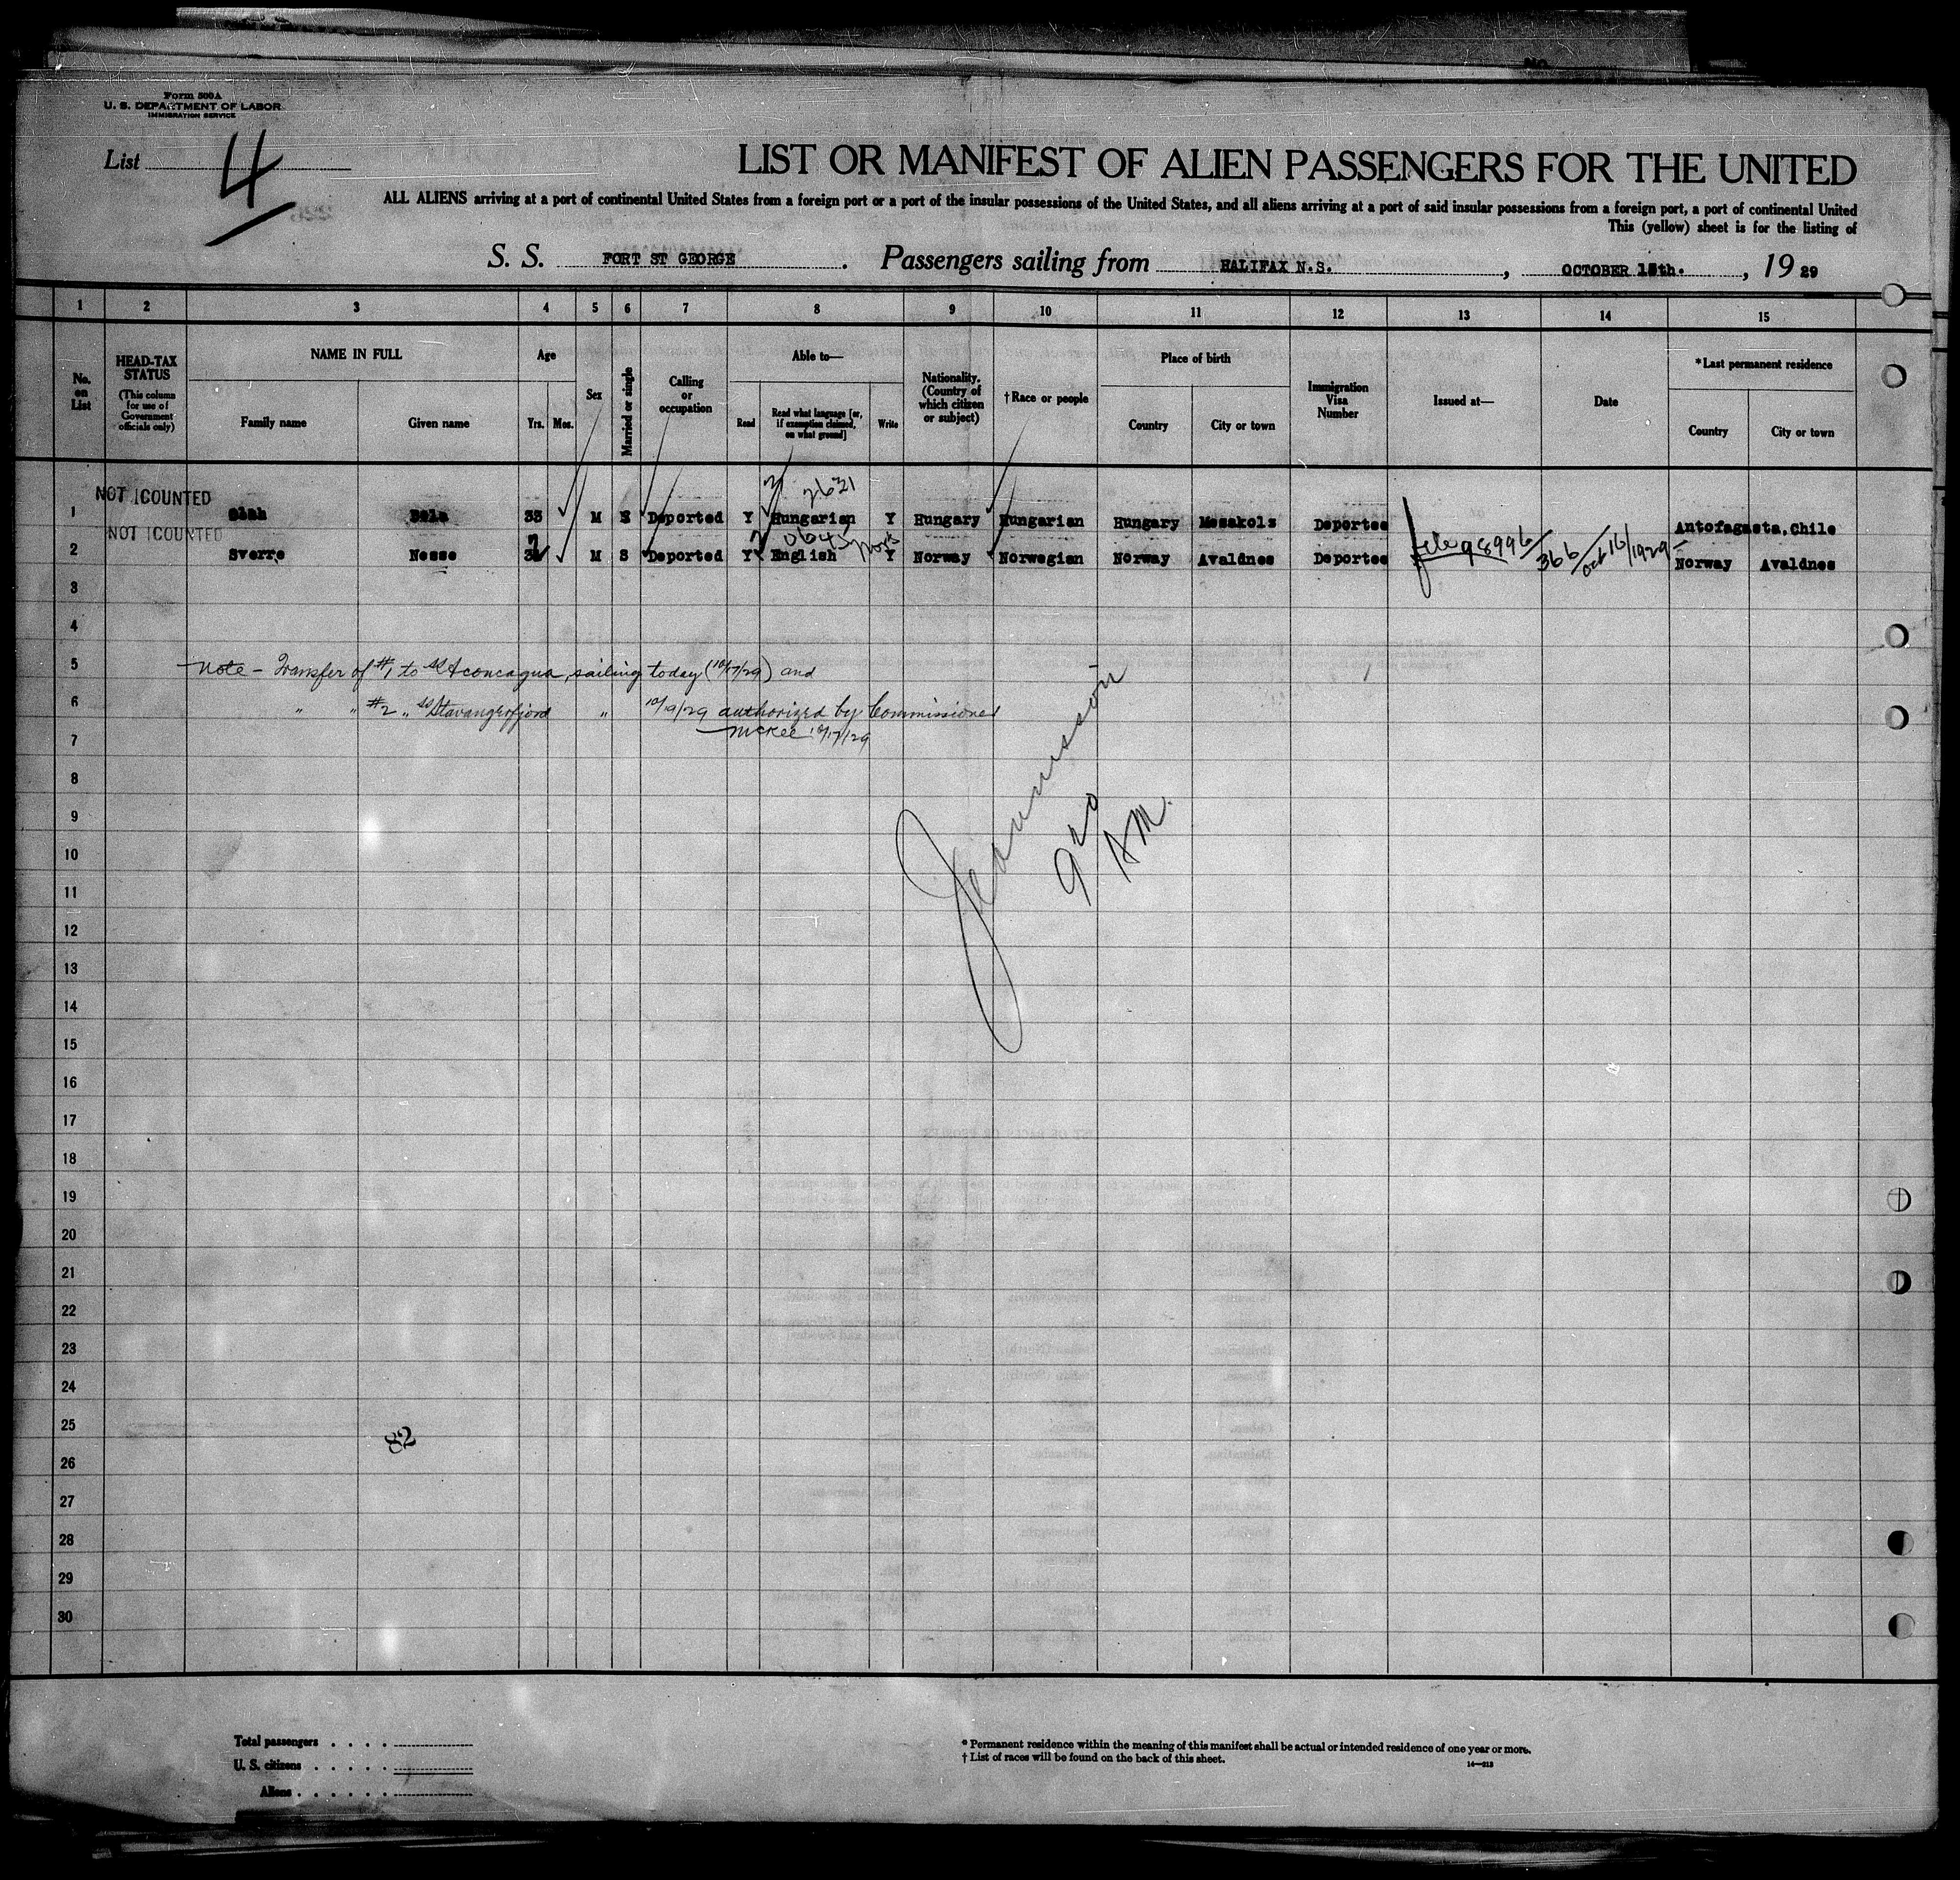 Form 500A
U. S. DEPARTMENT OF LABOR
IMMIGRATION SERVICE
List 4
LIST OR MANIFEST OF ALIEN PASSENGERS FOR THE UNITED
ALL ALIENS arriving at a port of continental United States from a foreign port or a port of the insular possessions of the United States, and all aliens arriving at a port of said insular possessions from a foreign port, a port of continental United
This (yellow) sheet is for the listing of
S. S. FORT ST GEORGE. Passengers sailing from HALIFAX N.S., OCTOBER 15th., 19 29
1 2 3 4 5 6 7 8 9 10 11 12 13 14 15
No. on List
HEAD-TAX STATUS
(This column for use of Government officials only)
NAME IN FULL
Family name Given name
Age
Yrs. Mos.
Sex
Married or single
Calling or occupation
Able to—
Read Read what language [or, if exemption claimed, on what ground] Write
Nationality. (Country of which citizen or subject)
†Race or people
Place of birth
Country City or town
Immigration Visa Number
Issued at—
Date
*Last permanent residence
Country City or town
NOT COUNTED
2631
1 Bela 33 M S Deported Y Hungarian Y Hungary Hungarian Hungary Mesakols Deportee Antofagasta, Chile
NOT COUNTED
2 Sverre Nesse M S Deported Y English Y Norway Norwegian Norway Avaldnes Deportee file 98996/366 Oct 16/1929 Norway Avaldnes
3
4
5 Note - Transfer of #1 to SS Aconcagua, sailing today (10/17/29) and
6 " " #2 " SS Stavangerfjord " 10/19/29 authorized by Commissioner
7 McKee 10/17/29
Jeannisson
9 20
AM.
8
9
10
11
12
13
14
15
16
17
18
19
20
21
22
23
24
25
82
26
27
28
29
30
Total passengers . . . .
U. S. citizens . . . . .
Aliens . . . . . .
* Permanent residence within the meaning of this manifest shall be actual or intended residence of one year or more.
† List of races will be found on the back of this sheet.
14—213